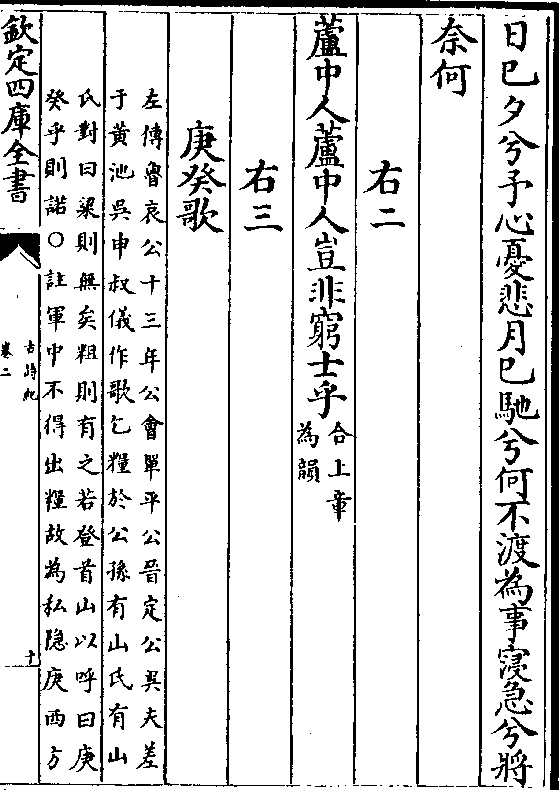 日已夕兮予心憂悲月已馳兮何不渡為事寖急兮將
奈何
右二
蘆中人蘆中人豈非窮士乎合上章為韻
右三
庚癸歌
左傳魯哀公十三年公會單平公晉定公吳夫差
于黃池吳申叔儀作歌乞糧於公孫有山氏有山
氏對曰粱則無矣粗則有之若登首山以呼曰庚
癸乎則諾○註軍中不得出糧故為私隱庚西方
欽定四庫全書
古詩紀
卷二
十